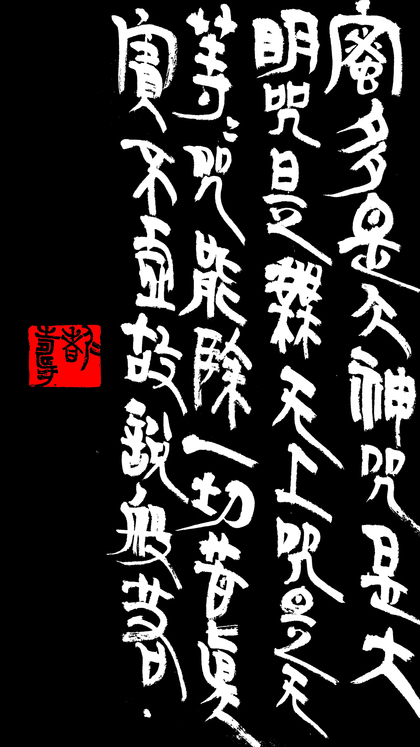 蜜多是大神咒是大
明咒是無无上咒是无
等〻咒能除一切苦真
實不虛故說般若